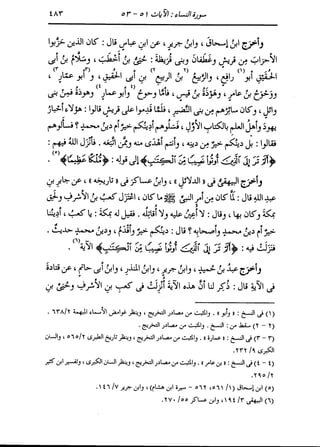 سورة النساء: الآيات ٥١ - ٥٣ ٤٨٣
وأخرج ابن إسحاق، وابن جرير، عن ابن عباس قال: كان الذين حزَّبوا
الأحزاب من قريش وغطفان وبنى قريظة؛ حُيَىُّ بنُ أخطبَ، وسلَّامُ بنُ أبى
الحُقَيقِ أبو رافع، والربيعُ بنُ الربيع بنِ أبى الحُقَيقِ، وأبو عمار،
ووَحْوَحُ بنُ عامرٍ، وهَوْذَةُ بنُ قيسٍ، فأمَّا وحوحُ وأبو عمار وهوذةُ فمن بنى
وائلٍ، وكان سائرُهم من بنى النضيرِ، فلمَّا قدِموا على قريش قالوا: هؤلاء أحبارُ
يهودَ وأهلُ العلمِ بالكتابِ الأولِ، فسلوهم أدينُكم خيرٌ أم دينُ محمدٍ؟ فسألوهم
فقالوا: بل دينُكم خيرٌ من دينِه، وأنتم أهدى منه وممَّن اتَّبعه. فأنزل اللهُ فيهم:
﴿أَلَمْ تَرَ إِلَى الَّذِينَ أُوتُوا نَصِيبًا مِنَ الْكِتَابِ﴾ إلى قوله: ﴿مُلْكًا عَظِيمًا﴾.
وأخرج البيهقى فى «الدلائل»، وابن عساكر فى «تاريخه»، عن جابر بن
عبد الله قال: لما كان من أمر النبىِّ ﷺ ما كان، اعتزل كعبُ بنُ الأشرفِ ولحِق
بمكةَ وكان بها، وقال: لا أُعينُ عليه ولا أقاتلُه. فقيل له بمكةَ: يا كعبُ، أدينُنا
خيرٌ أم دينُ محمدٍ وأصحابِه؟ قال: دينُكم خيرٌ وأقدمُ، ودينُ محمدٍ حديثٌ.
فنزلت فيه: ﴿أَلَمْ تَرَ إِلَى الَّذِينَ أُوتُوا نَصِيبًا مِنَ الْكِتَابِ﴾ الآية.
وأخرج عبد بن حُميد، وابن جرير، وابن المنذر، وابن أبى حاتم، عن قتادة
فى الآية قال: ذُكر لنا أن هذه الآيةَ أُنزلت فى كعبِ بنِ الأشرفِ وحُيَىِّ بنِ
(١) فى النسخ: «وأبو». والمثبت من مصادر التخريج، وينظر غوامض الأسماء المبهمة ٦٣٨/٢.
(٢ - ٢) سقط من: النسخ. والمثبت من مصادر التخريج.
(٣ - ٣) فى النسخ: «عمارة». والمثبت من مصادر التخريج، وينظر تاريخ الطبرى ٥٦٥/٢، والسنن
الكبرى ٢٣٢/٩.
(٤ - ٤) فى النسخ: «بن عامر». والمثبت من مصادر التخريج، وينظر السنن الكبرى، وتفسير ابن كثير
٢٩٥/٢.
(٥) ابن إسحاق (٥٦١/١، ٥٦٢ - سيرة ابن هشام)، وابن جرير ١٤٦/٧.
(٦) البيهقى ١٩٤/٣، وابن عساكر ٢٧٠/٥٥.